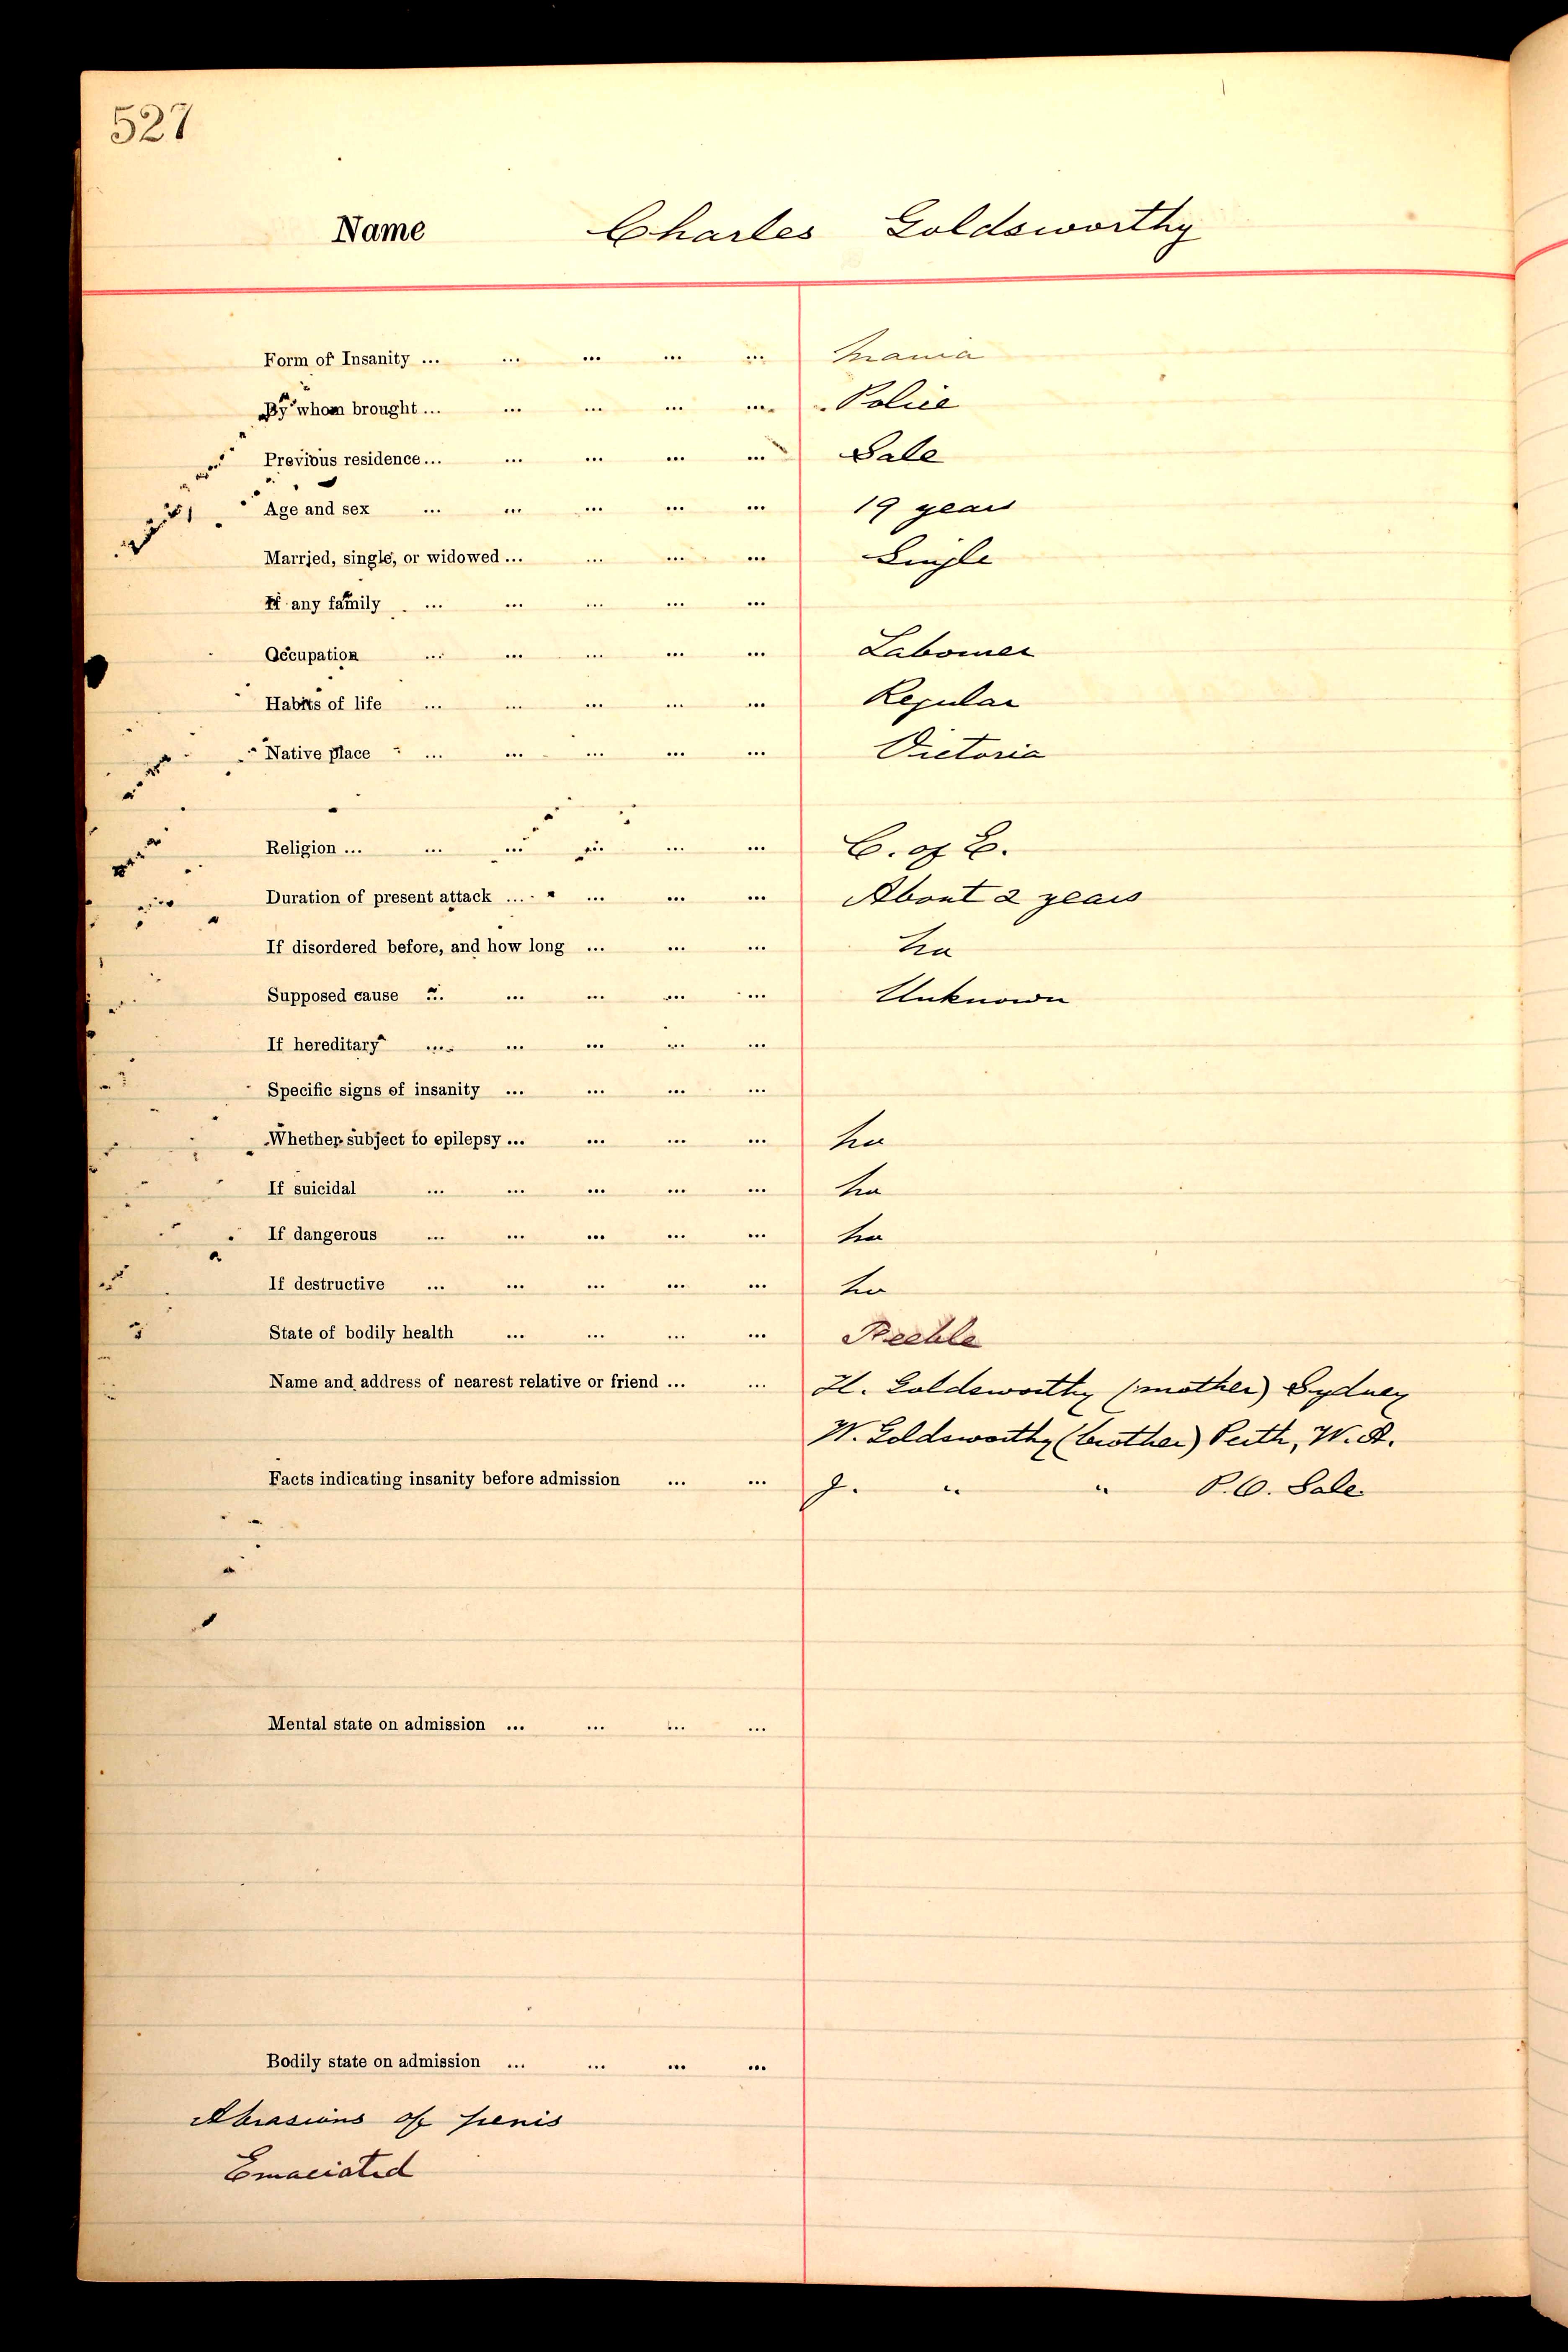 527
Name Charles Goldsworthy
Form of Insanity ... ... ... ... ... Mania
By whom brought ... ... ... ... ... Police
Previous residence ... ... ... ... ... Sale
Age and sex ... ... ... ... ... 19 years
Married, single, or widowed ... ... ... ... Single
If any family ... ... ... ... ...
Occupation ... ... ... ... ... Labourer
Habits of life ... ... ... ... ... Regular
Native place ... ... ... ... ... Victoria
Religion ... ... ... ... ... ... C. of E.
Duration of present attack ... ... ... ... About 2 years
If disordered before, and how long ... ... ... No
Supposed cause ... ... ... ... ... Unknown
If hereditary ... ... ... ... ...
Specific signs of insanity ... ... ... ...
Whether subject to epilepsy ... ... ... ... No
If suicidal ... ... ... ... ... No
If dangerous ... ... ... ... ... No
If destructive ... ... ... ... ... No
State of bodily health ... ... ... ... Feeble
Name and address of nearest relative or friend ... ... H. Goldsworthy (mother) Sydney
W. Goldsworthy (brother) Perth, W. A.
Facts indicating insanity before admission ... ... J. " " P.O. Sale.
Mental state on admission ... ... ... ...
Bodily state on admission ... ... ... ...
Abrasions of penis
Emaciated